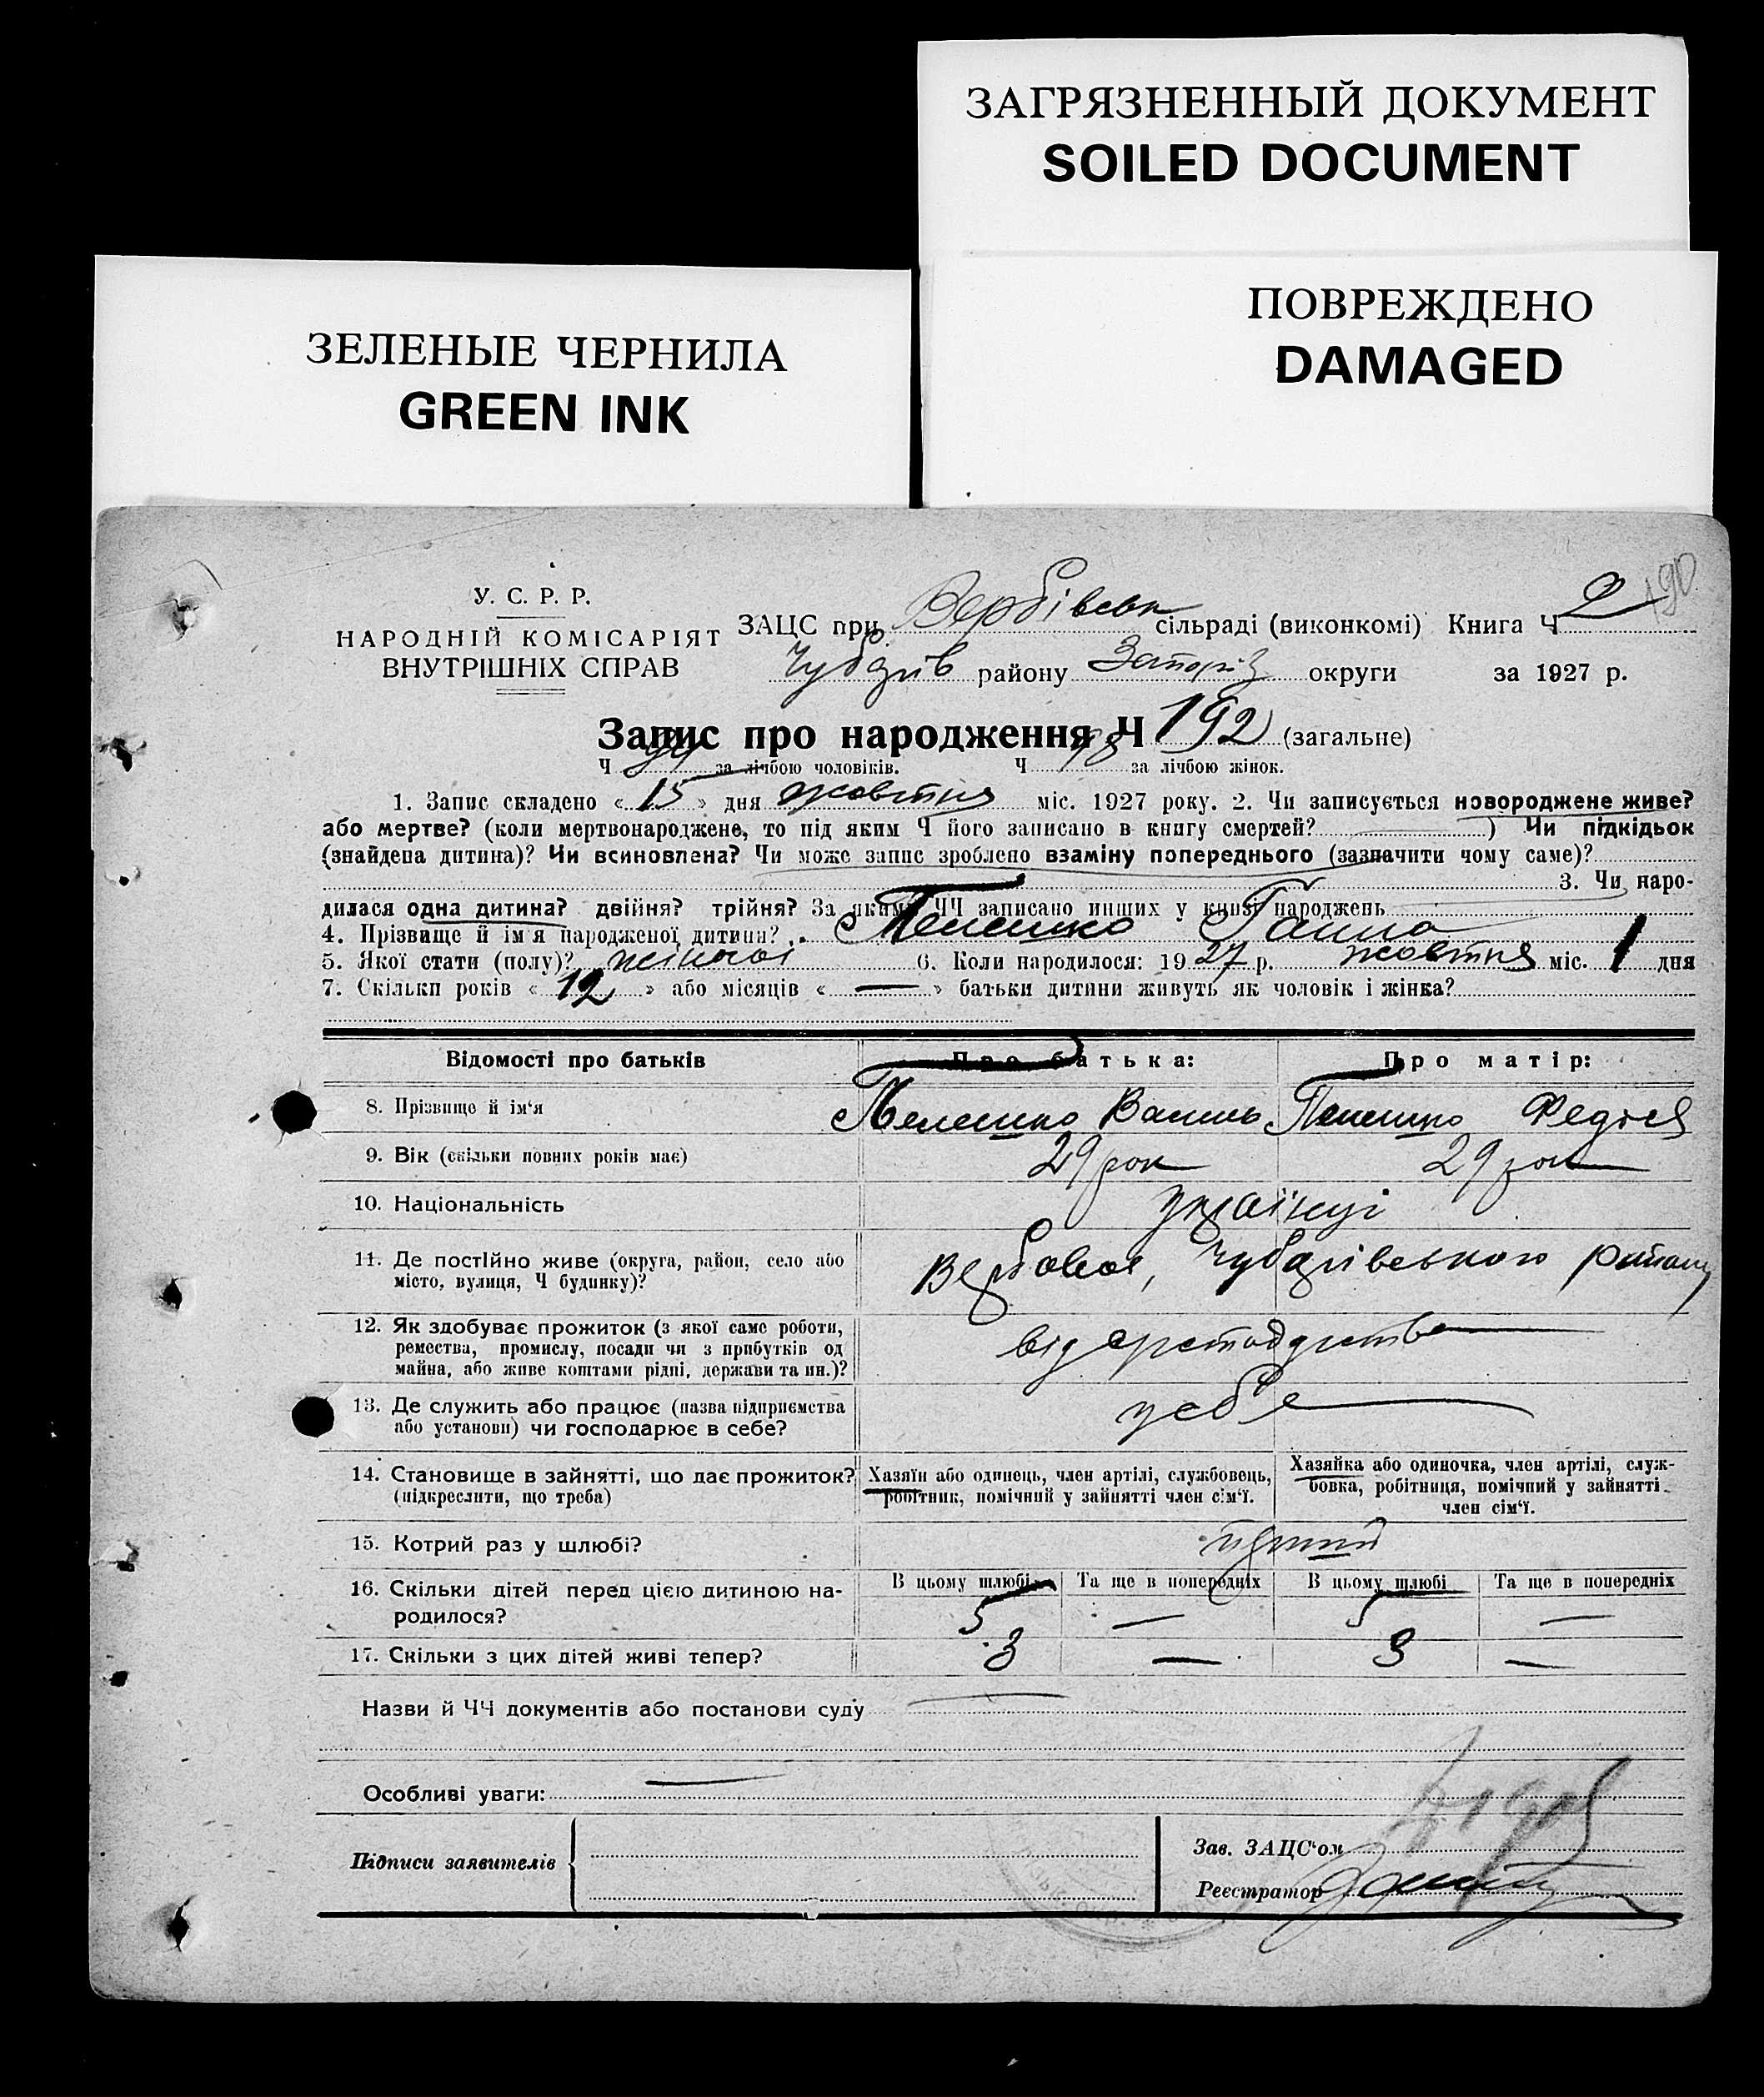 ЗАГРЯЗНЕННЫЙ ДОКУМЕНТ
SOILED DOCUMENT
ПОВРЕЖДЕНО
DAMAGED
ЗЕЛЕНЫЕ ЧЕРНИЛА
GREEN INK
190
У. С. Р. Р.
НАРОДНІЙ КОМІСАРІЯТ
ВНУТРІШНІХ СПРАВ
ЗАЦС при Вербівськ сільраді (виконкомі) Книга Ч 2
Чубарів району Запоріз округи за 1927 р.
Запис про народження Ч 192 (загальне)
Ч 94 за лічбою чоловіків. Ч 98 за лічбою жінок.
1. Запис складено « 15 » дня жовтня міс. 1927 року. 2. Чи записується новороджене живе?
або мертве? (коли мертвонароджене, то під яким Ч його записано в книгу смертей? ) Чи підкідьок
(знайдена дитина)? Чи всиновлена? Чи може запис зроблено взаміну попереднього (зазначити чому саме)?
3. Чи наро-
дилася одна дитина? двійня? трійня? За якими ЧЧ записано инших у книзі народжень
4. Прізвище й ім'я народженої дитини? Пелешко Ганна
5. Якої стати (полу)? жіночої 6. Коли народилося: 1927 р. жовтня міс. 1 дня
7. Скільки років « 12 » або місяців « — » батьки дитини живуть як чоловік і жінка?
Відомості про батьків Про батька: Про матір:
8. Прізвище й ім'я Пелешко Василь Пелешко Федося
9. Вік (скільки повних років має) 29 рок 29 рок
10. Національність українці
11. Де постійно живе (округа, район, село або
місто, вулиця, Ч будинку)? Вербовое, Чубарівського району
12. Як здобуває прожиток (з якої саме роботи,
ремества, промислу, посади чи з прибутків од
майна, або живе коштами рідні, держави та ин.)?
від
13. Де служить або працює (назва підприємства
або установи) чи господарює в себе? у себе
14. Становище в зайнятті, що дає прожиток?
(підкреслити, що треба)
Хазяїн або одинець, член артілі, службовець,
робітник, помічний у зайнятті член сім'ї.
Хазяйка або одиночка, член артілі, служ-
бовка, робітниця, помічний у зайнятті
член сім'ї.
15. Котрий раз у шлюбі? перший
16. Скільки дітей перед цією дитиною на-
родилося?
В цьому шлюбі Та ще в попередніх В цьому шлюбі Та ще в попередніх
5 — 5 —
17. Скільки з цих дітей живі тепер? 3 — 3 —
Назви й ЧЧ документів або постанови суду —
Особливі уваги: —
Підписи заявителів
Зав. ЗАЦС'ом
Реєстратор